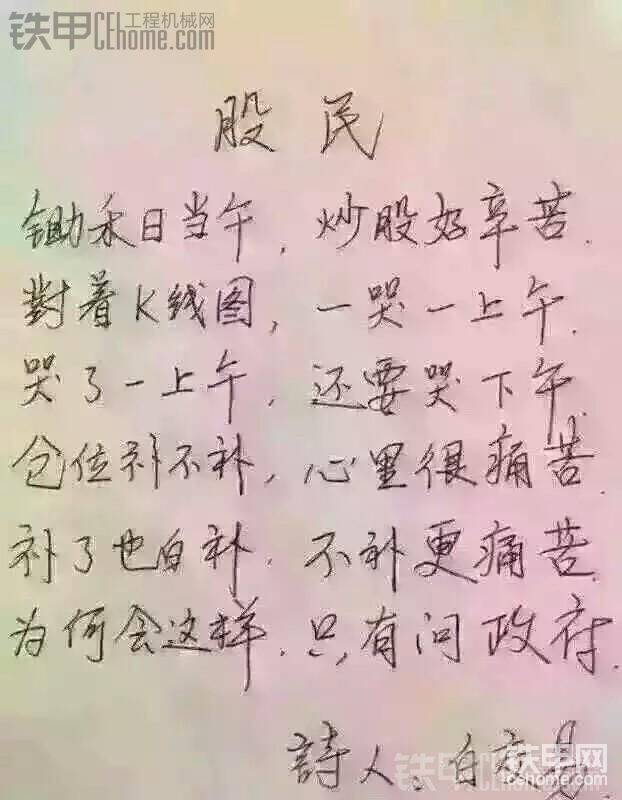 铁甲CE工程机械网
CEhome.com
股民
锄禾日当午，炒股好辛苦.
對着K线图，一哭一上午.
哭了一上午，还要哭下午.
仓位补不补，心里很痛苦.
补了也白补.不补更痛苦.
为何会这样.只有问政府.
詩人:白交易.
铁甲网
cehome.com